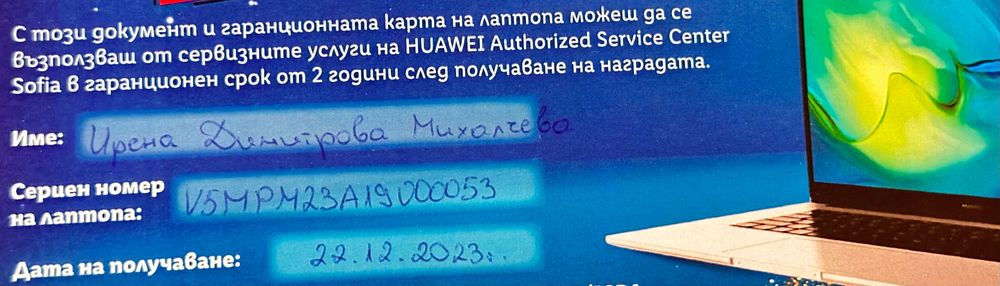 С този документ и гаранционната карта на лаптопа можеш да се
възползваш от сервизните услуги на HUAWEI Authorized Service Center
Sofia в гаранционен срок от 2 години след получаване на наградата.
Име: Ирена Димитрова Михалчева
Сериен номер
на лаптопа: V5MPM23A19000053
Дата на получаване: 22.12.2023г.